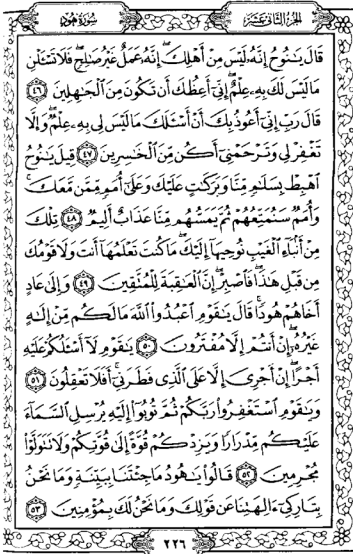 الجزء الثاني عشر
سورة هود
قَالَ يَٰنُوحُ إِنَّهُۥ لَيْسَ مِنْ أَهْلِكَ إِنَّهُۥ عَمَلٌ غَيْرُ صَٰلِحٍ فَلَا تَسْـَٔلْنِ
مَا لَيْسَ لَكَ بِهِۦ عِلْمٌ إِنِّىٓ أَعِظُكَ أَن تَكُونَ مِنَ ٱلْجَٰهِلِينَ ٤٦
قَالَ رَبِّ إِنِّىٓ أَعُوذُ بِكَ أَنْ أَسْـَٔلَكَ مَا لَيْسَ لِى بِهِۦ عِلْمٌ وَإِلَّا
تَغْفِرْ لِى وَتَرْحَمْنِىٓ أَكُن مِّنَ ٱلْخَٰسِرِينَ ٤٧ قِيلَ يَٰنُوحُ
ٱهْبِطْ بِسَلَٰمٍ مِّنَّا وَبَرَكَٰتٍ عَلَيْكَ وَعَلَىٰٓ أُمَمٍ مِّمَّن مَّعَكَ
وَأُمَمٌ سَنُمَتِّعُهُمْ ثُمَّ يَمَسُّهُم مِّنَّا عَذَابٌ أَلِيمٌ ٤٨ تِلْكَ
مِنْ أَنۢبَآءِ ٱلْغَيْبِ نُوحِيهَآ إِلَيْكَ مَا كُنتَ تَعْلَمُهَآ أَنتَ وَلَا قَوْمُكَ
مِن قَبْلِ هَٰذَا فَٱصْبِرْ إِنَّ ٱلْعَٰقِبَةَ لِلْمُتَّقِينَ ٤٩ وَإِلَىٰ عَادٍ
أَخَاهُمْ هُودًا قَالَ يَٰقَوْمِ ٱعْبُدُوا۟ ٱللَّهَ مَا لَكُم مِّنْ إِلَٰهٍ
غَيْرُهُۥٓ إِنْ أَنتُمْ إِلَّا مُفْتَرُونَ ٥٠ يَٰقَوْمِ لَآ أَسْـَٔلُكُمْ عَلَيْهِ
أَجْرًا إِنْ أَجْرِىَ إِلَّا عَلَى ٱلَّذِى فَطَرَنِىٓ أَفَلَا تَعْقِلُونَ ٥١
وَيَٰقَوْمِ ٱسْتَغْفِرُوا۟ رَبَّكُمْ ثُمَّ تُوبُوٓا۟ إِلَيْهِ يُرْسِلِ ٱلسَّمَآءَ
عَلَيْكُم مِّدْرَارًا وَيَزِدْكُمْ قُوَّةً إِلَىٰ قُوَّتِكُمْ وَلَا تَتَوَلَّوْا۟
مُجْرِمِينَ ٥٢ قَالُوا۟ يَٰهُودُ مَا جِئْتَنَا بِبَيِّنَةٍ وَمَا نَحْنُ
بِتَارِكِىٓ ءَالِهَتِنَا عَن قَوْلِكَ وَمَا نَحْنُ لَكَ بِمُؤْمِنِينَ ٥٣
٢٢٦